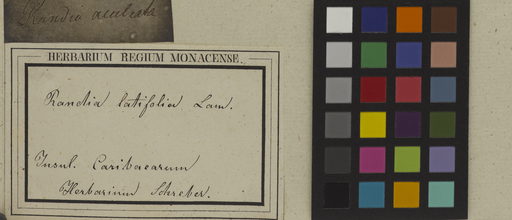 Randia aculeata
HERBARIUM REGIUM MONACENSE.
Randia latifolia Lam.
Insul. Caribaearum
Herbarium Schreber.